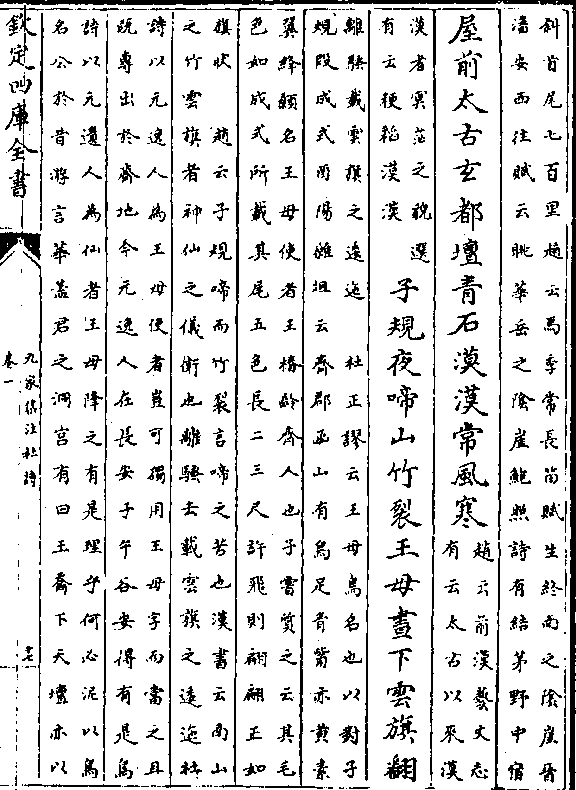 斜首尾七百里趙云馬季常長笛賦生終南之陰崖晉
潘安西征賦云眺華岳之陰崖鮑照詩有結茅野中宿
屋前太古玄都壇青石漠漠常風寒
趙云前漢藝文志
有云太古以來漠
漢者冥茫之貌選
有云稉稻漠漠
子規夜啼山竹裂王母晝下雲旗翻
離騷載雲旗之逶迤　杜正謬云王母鳥名也以對子
規段成式酉陽雜俎云齊郡函山有鳥足青觜亦黄素
翼絳顙名王母使者王椿齡齊人也予嘗質之云其毛
色如成式所載其尾五色長二三尺許飛則翩翩正如
旗狀　趙云子規啼而竹裂言啼之苦也漢書云南山
之竹雲旗者神仙之儀衛也離騷云載雲旗之逶迤杜
詩以元逸人為王母使者豈可獨用王母字而當之且
既專出於齊地今元逸人在長安子午谷安得有是鳥
詩以元逸人為仙者王母降之有是理乎何必泥以鳥
名公於昔游言華蓋君之洞宫有曰王喬下天壇亦以
欽定四庫全書
九家集注杜詩
卷一